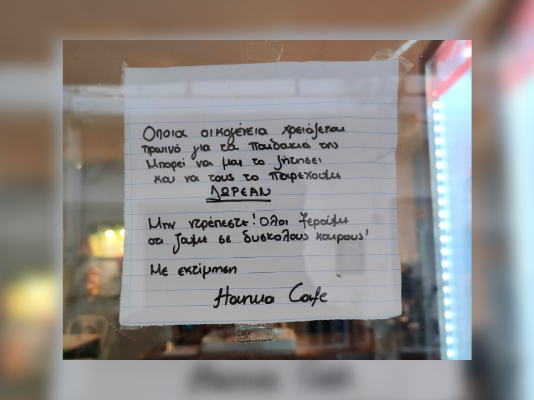 Όποια οικογένεια χρειάζεται
πρωινό για τα παιδάκια της
Μπορεί να μας το ζητήσει
και να τους το παρέχουμε
ΔΩΡΕΑΝ
Μην ντρέπεστε! Όλοι ξέρουμε
οτι ζουμε σε δυσκολους καιρους!
Με εκτίμηση
Cafe